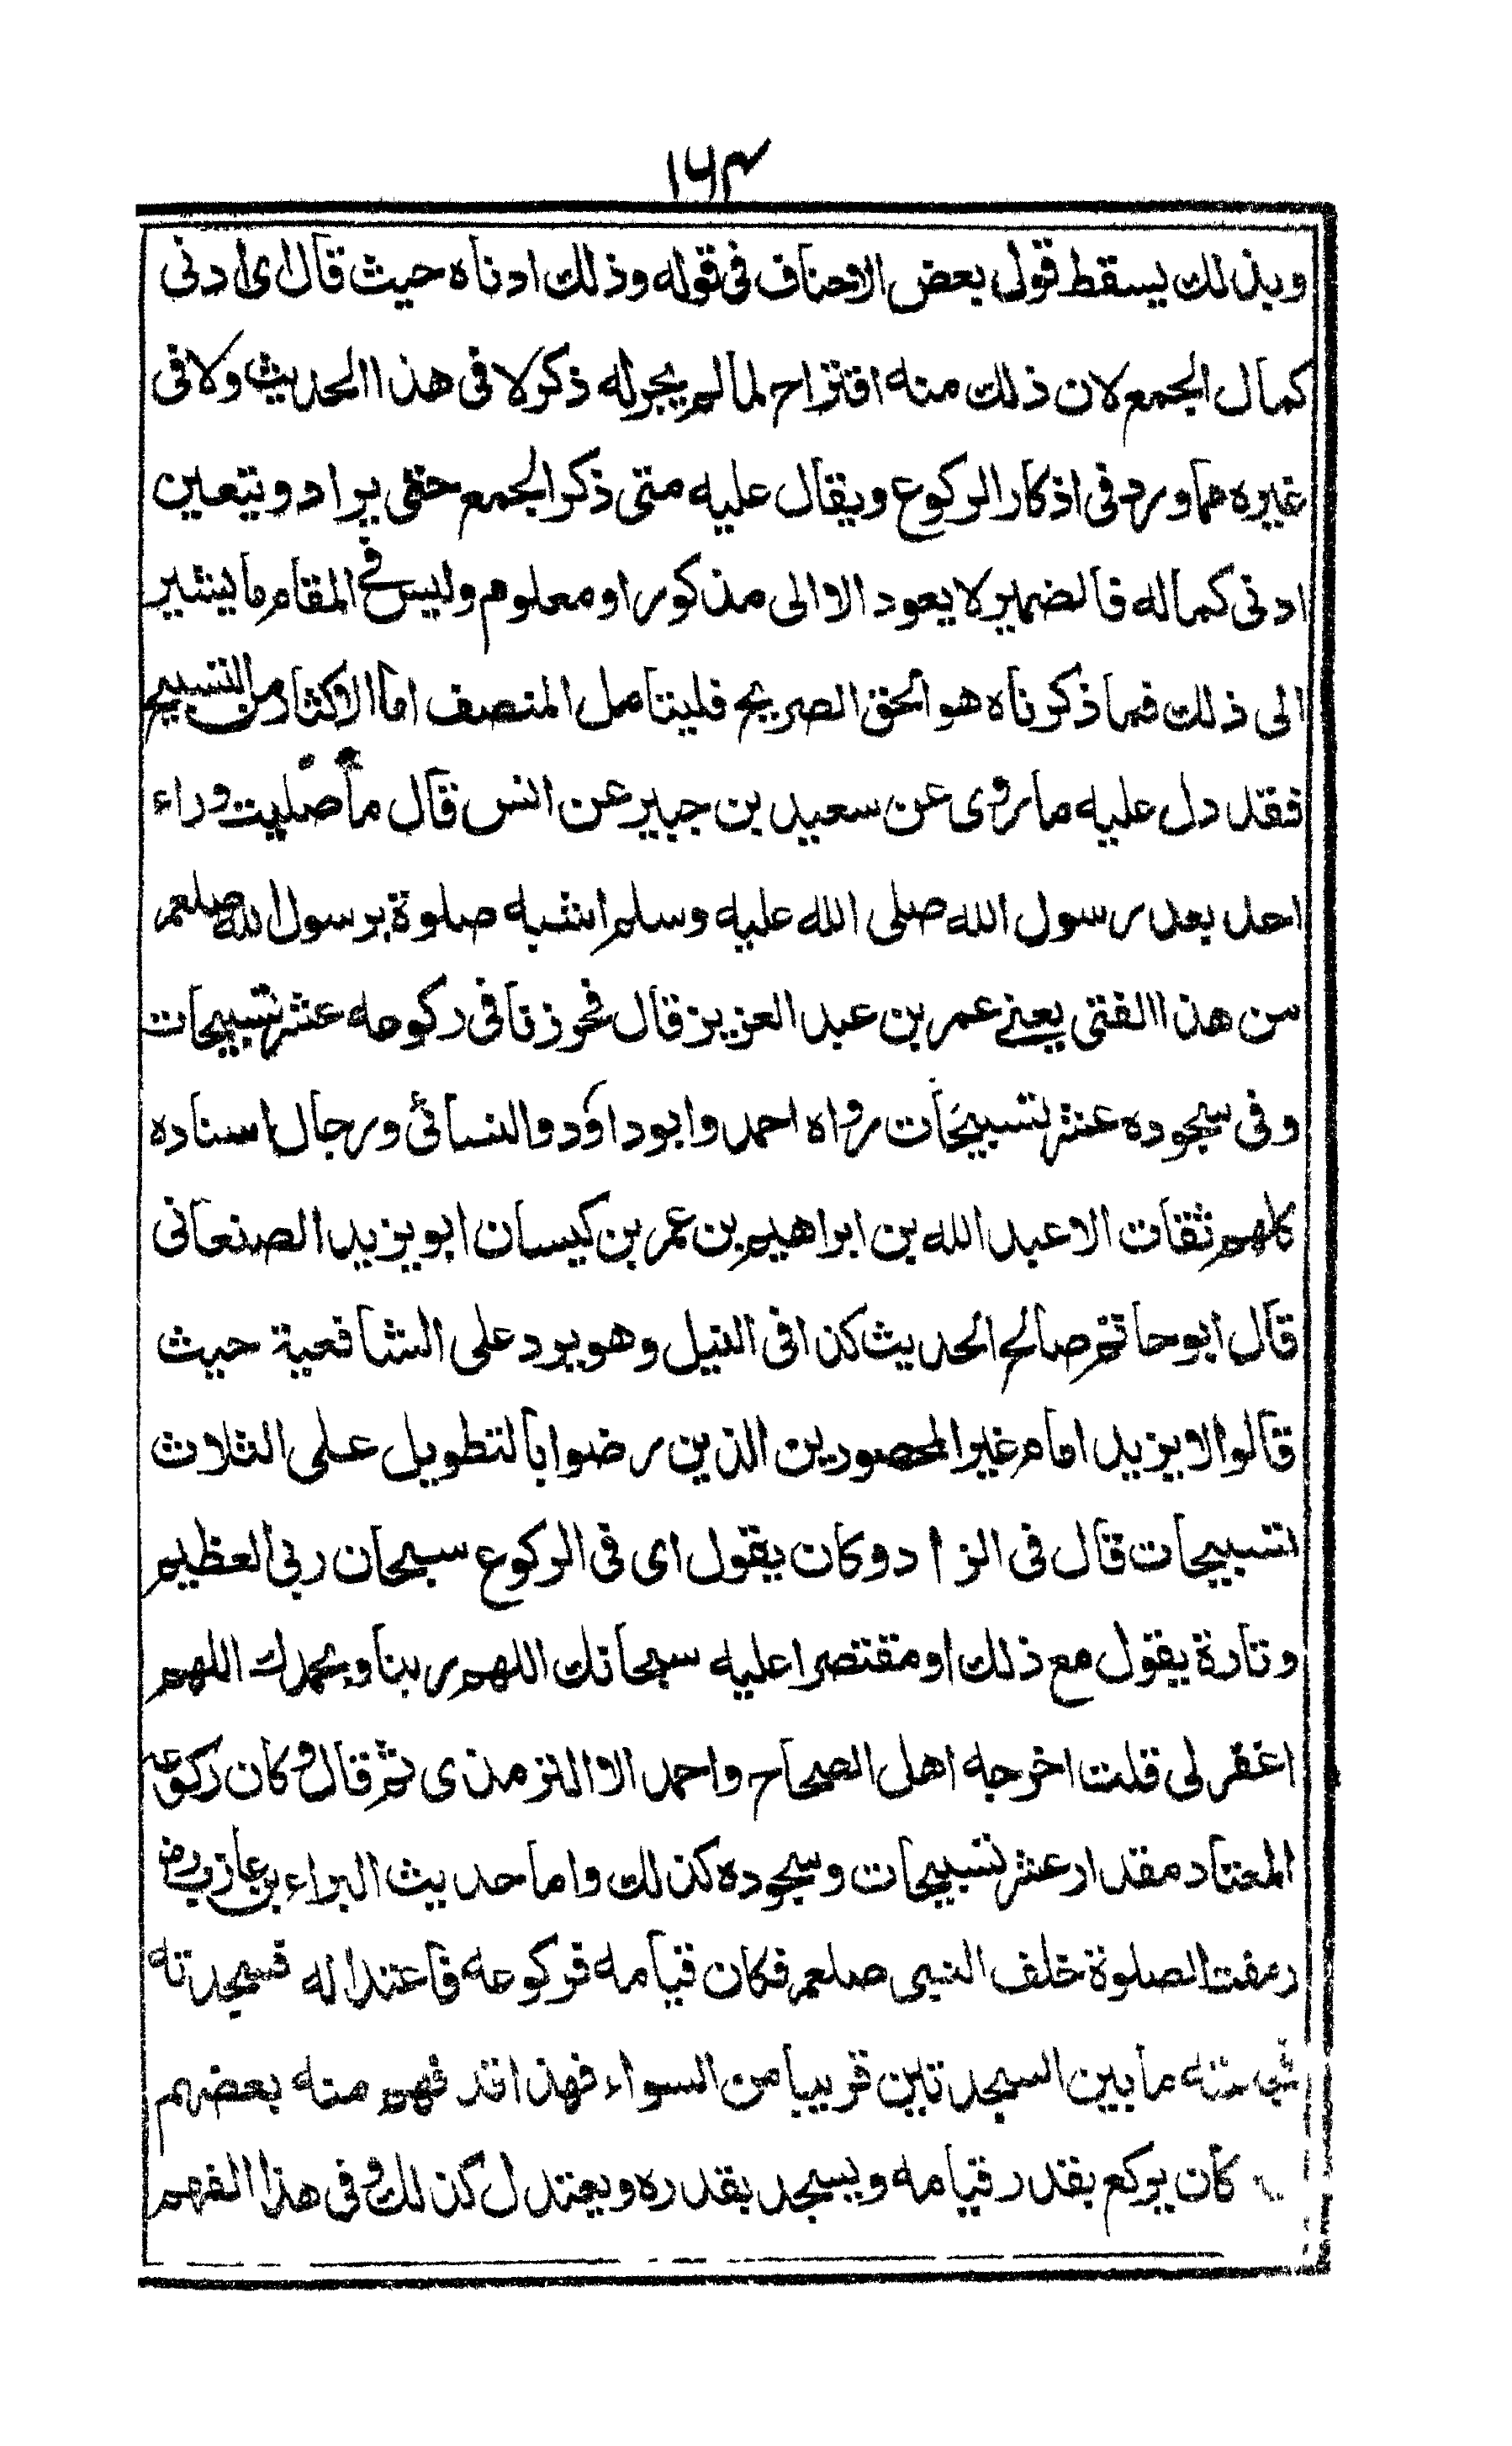 ١٦٣
وبذلك يسقط قول بعض الاحناف فى قوله وذلك ادناه حيث قال اى ادنى
كمال الجمع لان ذلك منه اقتراح لمالم يجرله ذكر لا فى هذا الحديث ولا فى
غيره مما ورد فى اذكار الركوع ويقال عليه متى ذكر الجمع حتى يراد ويتعين
ادنى كماله فالضمير لا يعود الا الى مذكور او معلوم وليس فى المقام ما يشير
الى ذلك فما ذكرناه هو الحق الصريح فليتامل المنصف اما الاكثار من التسبيح
فقد دل عليه ما روى عن سعيد بن جبير عن انس قال ما صليت وراء
احد بعد رسول الله صلى الله عليه وسلم اشبه صلوة برسول الله صلعم
من هذا الفتى يعنے عمر بن عبد العزيز قال فحوزنا فى ركوعه عشر تسبيحات
وفى سجوده عشر تسبيحات رواه احمد وابوداؤد والنسائى ورجال اسناده
كلهم ثقات الا عبد الله بن ابراهيم بن عمر بن كيسان ابو يزيد الصنعانى
قال ابو حاتم صالح الحديث كذا فى النيل وهو يرد على الشافعية حيث
قالوا لا يزيد امام غير المحصورين الذين رضوا بالتطويل على الثلاث
تسبيحات قال فى الزاد وكان يقول اى فى الركوع سبحان ربى العظيم
وتارة يقول مع ذلك او مقتصرا عليه سبحانك اللهم ربنا وبحمدك اللهم
اغفر لى قلت اخرجه اهل الصحاح واحمد الا الترمذى ثم قال وكان ركوعه
المعتاد مقدار عشر تسبيحات وسجوده كذلك واما حديث البراء بن عازب رض
رمقت الصلوة خلف النبى صلعم فكان قيامه فركوعه فاعتداله فسجدته
ما بين السجدتين قريبا من السواء فهذا قد فهم منه بعضهم
كان يركع بقدر قيامه ويسجد بقدره ويعتدل كذلك وفى هذا الفهم